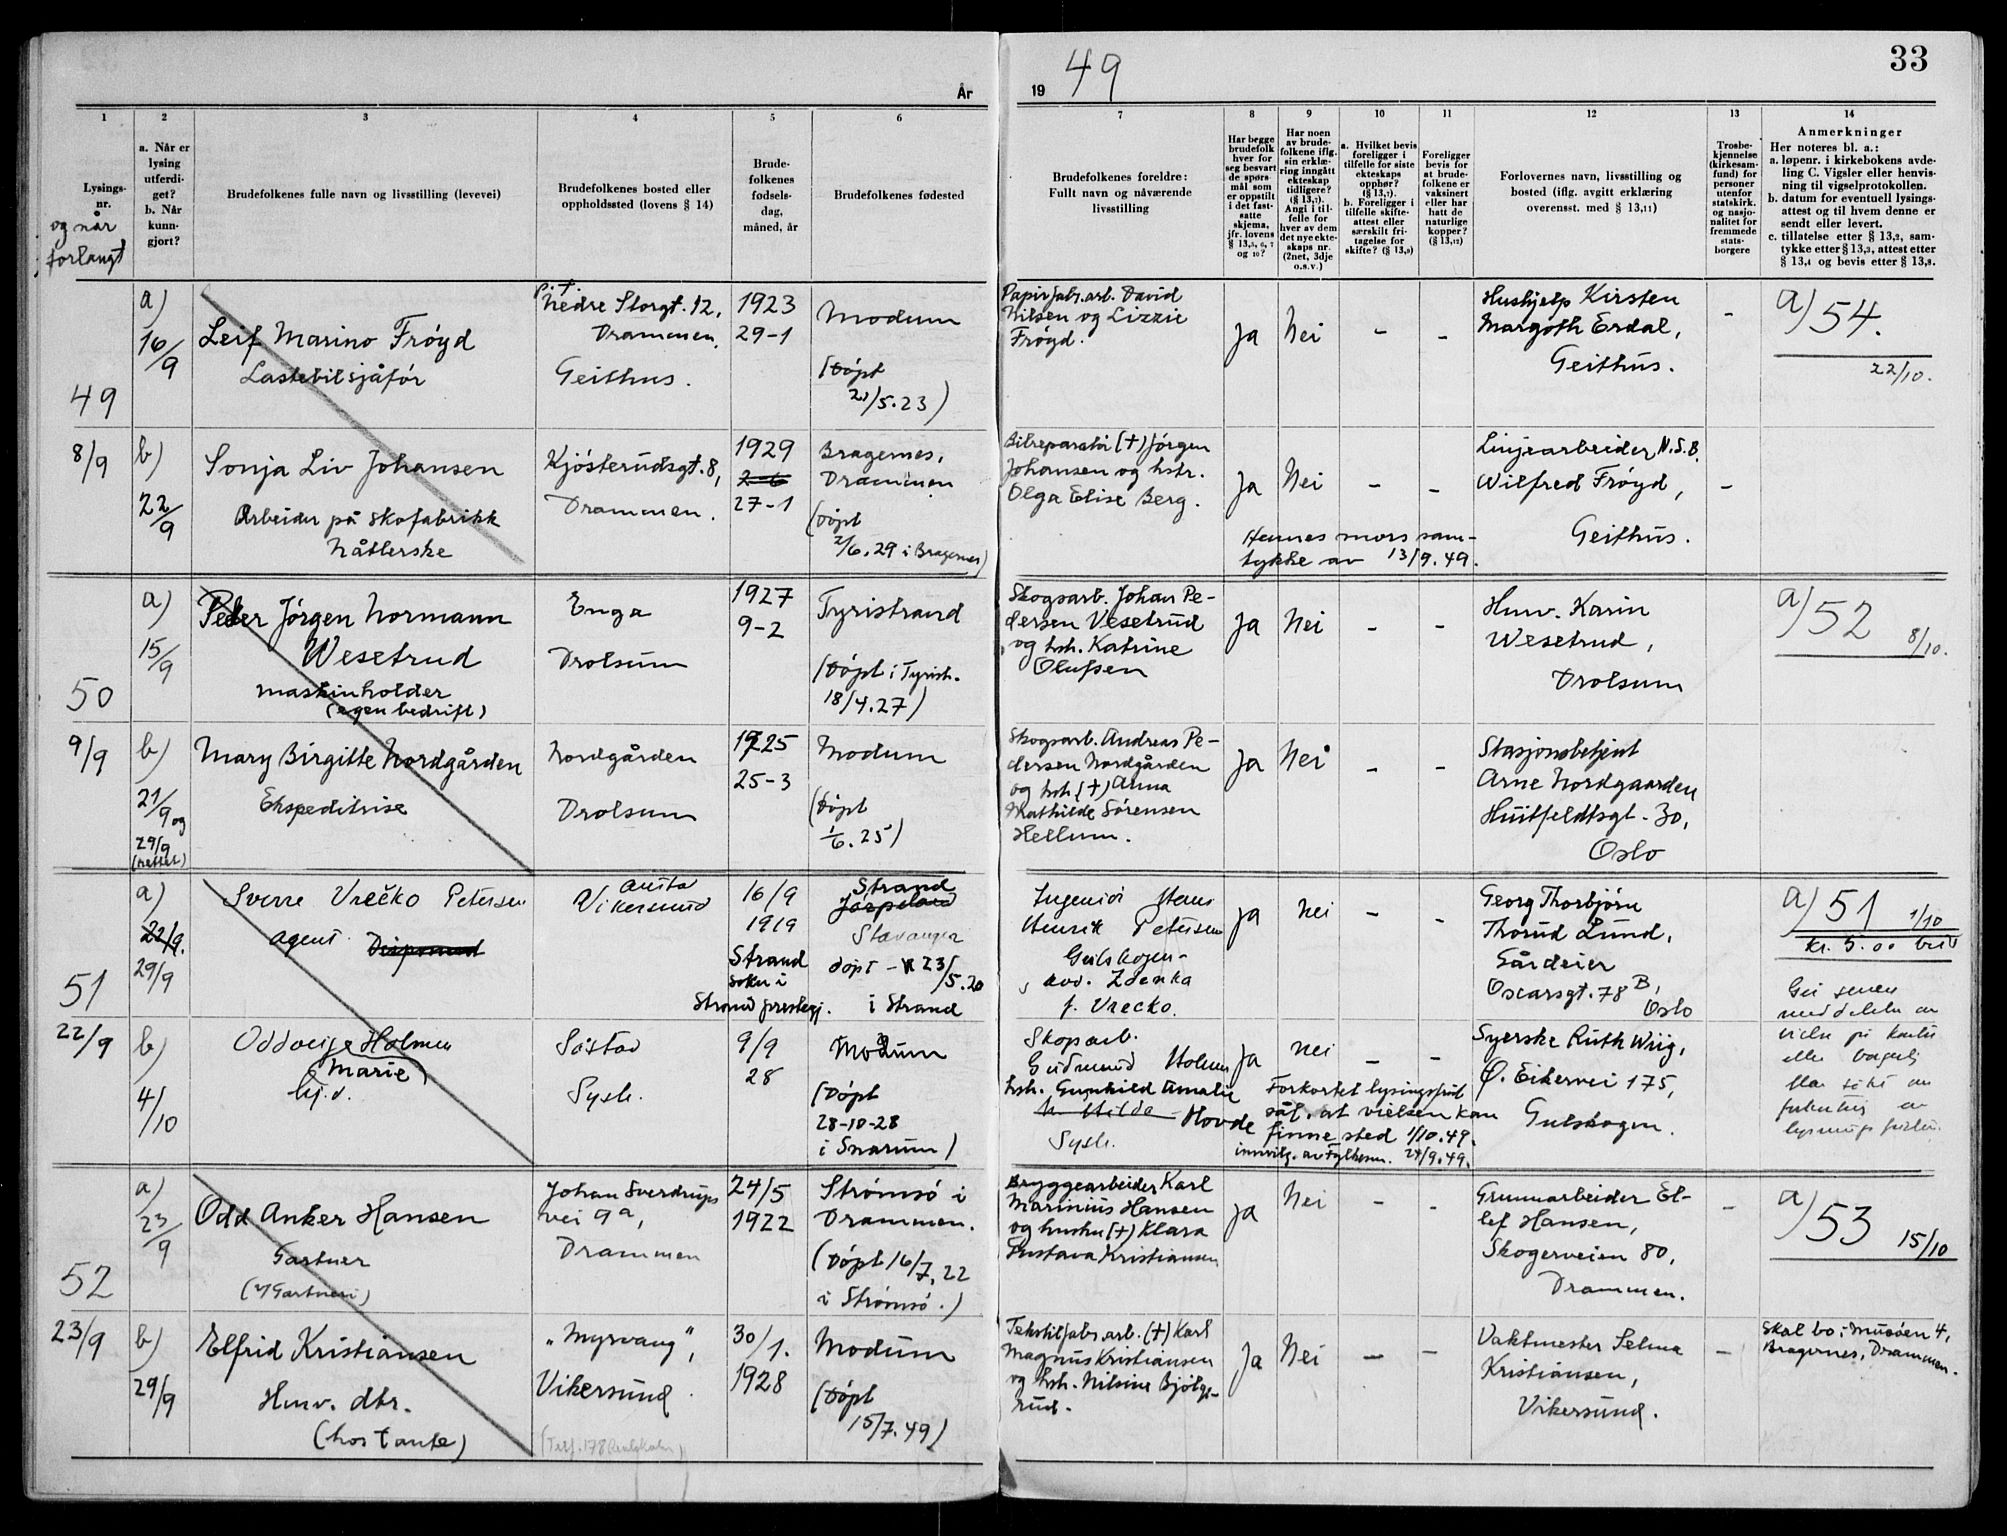 33
År
19 49
1
2
3
4
5
6
7
8
9
10
11
12
13
14
Lysings-
nr.
og når
forlangt
a. Når er
lysing
utferdi-
get?
b. Når
kunn-
gjort?
Brudefolkenes fulle navn og livsstilling (levevei)
Brudefolkenes bosted eller
oppholdssted (lovens § 14)
Brude-
folkenes
fødsels-
dag,
måned, år
Brudefolkenes fødested
Brudefolkenes foreldre:
Fullt navn og nåværende
livsstilling
Har begge
brudefolk
hver for
seg besvart
de spørs-
mål som
er oppstilt
i det fast-
satte
skjema,
jfr. lovens
§ 13,5, 6, 7
og 10?
Har noen
av brude-
folkene iflg.
sin erklæ-
ring inngått
ekteskap
tidligere?
(§ 13,7).
Angi i til-
felle for
hver av dem
det nye ekte-
skaps nr.
(2net, 3dje
o.s.v.)
a. Hvilket bevis
foreligger i
tilfelle for siste
ekteskaps
opphør?
(§ 13,7).
b. Foreligger i
tilfelle skifte-
attest eller
særskilt fri-
tagelse for
skifte? (§ 13,8)
Foreligger
bevis for
at brude-
folkene er
vaksinert
eller har
hatt de
naturlige
kopper?
(§ 13,12)
Forlovernes navn, livsstilling og
bosted (iflg. avgitt erklæring
overensst. med § 13,11)
Trosbe-
kjennelse
(kirkesam-
fund) for
personer
utenfor
statskirk.
og nasjo-
nalitet for
fremmede
stats-
borgere
Anmerkninger
Her noteres bl. a.:
a. løpenr. i kirkebokens avde-
ling C. Vigsler eller henvis-
ning til vigselprotokollen.
b. datum for eventuell lysings-
attest og til hvem denne er
sendt eller levert.
c. tillatelse etter § 13,2, sam-
tykke etter § 13,3, attest etter
§ 13,4 og bevis etter § 13,8.
49
a)
16/9
Leif Marino Frøyd
Lastebilsjåfør
p.t.
Nedre Storgt. 12,
Drammen.
Geithus.
1923
29-1
Modum
(Døpt
21/5.23)
Papirfabr.arb. David
Nilsen og Lizzie
Frøyd.
Ja
Nei
–
–
Hushjelp Kirsten
Margoth Erdal,
Geithus.
–
a) 54.
22/10.
8/9
b)
22/9
Sonja Liv Johansen
Arbeider på skofabrikk
Nåtlerske
Kjøsterudsgt. 8,
Drammen.
1929
2-6
27-1
Bragernes,
Drammen
(Døpt
2/6.29 i Bragernes)
Bilreparatør (+) Jørgen
Johansen og hstr.
Olga Elise Berg.
Ja
Nei
–
–
Hennes mors sam-
tykke av 13/9.49.
Linjearbeider N.S.B.
Wilfred Frøyd,
Geithus.
–
50
a)
15/9
Peder Jørgen Normann
Wesetrud
maskinholder
(egen bedrift)
Enga
Drolsum
1927
9-2
Tyristrand
(Døpt i Tyrist.
18/4.27)
Skogsarb. Johan Pe-
dersen Vesetrud
og hstr. Katrine
Olufsen
Ja
Nei
–
–
Huv. Karin
Wesetrud,
Drolsum
a) 52
8/10.
9/9
b)
21/9 og
29/9
(rettet)
Mary Birgitte Nordgården
Ekspeditrise
Nordgården
Drolsum
1925
25-3
Modum
(Døpt
1/6.25)
Skogsarb. Andreas Pe-
dersen Nordgården
og hstr. (+) Anna
Mathilde Sørensen
Hellum.
Ja
Nei
–
–
Stasjonsbetjent
Arne Nordgaarden
Huitfeldtsgt. 30,
Oslo
51
a)
22/9.
29/9
Sverre Vrečko Petersen
agent
Vikersund
16/9
1919
Strand
sokn i
Strand prestegj.
Strand
Jørpeland
Stavanger
døpt – 23/5.20
i Strand
Ingeniør Hans
Henrik Petersen
Gulskogen
Zdenka
f. Vrecko.
Ja
Nei
–
–
Georg Thorbjørn
Thorud Lund,
Gårdeier
Oscarsgt. 78 B,
Oslo
a) 51
1/10
kr. 5.00
22/9
b)
4/10
Oddveig Holmen
Marie
hj.d.
Søstad
Sysle.
9/9
28
Modum
(Døpt
28-10-28
i Snarum)
Skogarb.
Gudmund Holmen
hstr. Gunhild Amalie
Hovde
Sysle.
Ja
Nei
–
–
Forkortet lysingsfrist
sål. at vielsen kan
finne sted 1/10.49.
innvilg. av Fylkesm. 24/9.49.
Syerske Ruth Wiig,
Ø. Eikervei 175,
Gulskogen.
52
a)
23/9
Odd Anker Hansen
Gartner
(i Gartneri)
Johan Sverdrups
vei 9a,
Drammen
24/5
1922
Strømsø i
Drammen.
(Døpt 16/7.22
i Strømsø.)
Bryggearbeider Karl
Marinius Hansen
og hustru (+) Klara
Gustava Kristiansen
Ja
Nei
–
–
Grunnarbeider El-
lef Hansen,
Skogerveien 80,
Drammen.
–
a) 53
15/10
23/9
b)
29/9
Elfrid Kristiansen
Huv. dtr.
(hos tante)
"Myrvang",
Vikersund.
30/1.
1928
Modum
(Døpt
15/7.49)
Tekstilfabr.arb. (+) Karl
Magnus Kristiansen
og hstr. Nilsine Bjølge-
rud.
Ja
Nei
–
–
Vaktmester Selma
Kristiansen,
Vikersund.
–
Skal bo: Musøen 4,
Bragernes, Drammen.